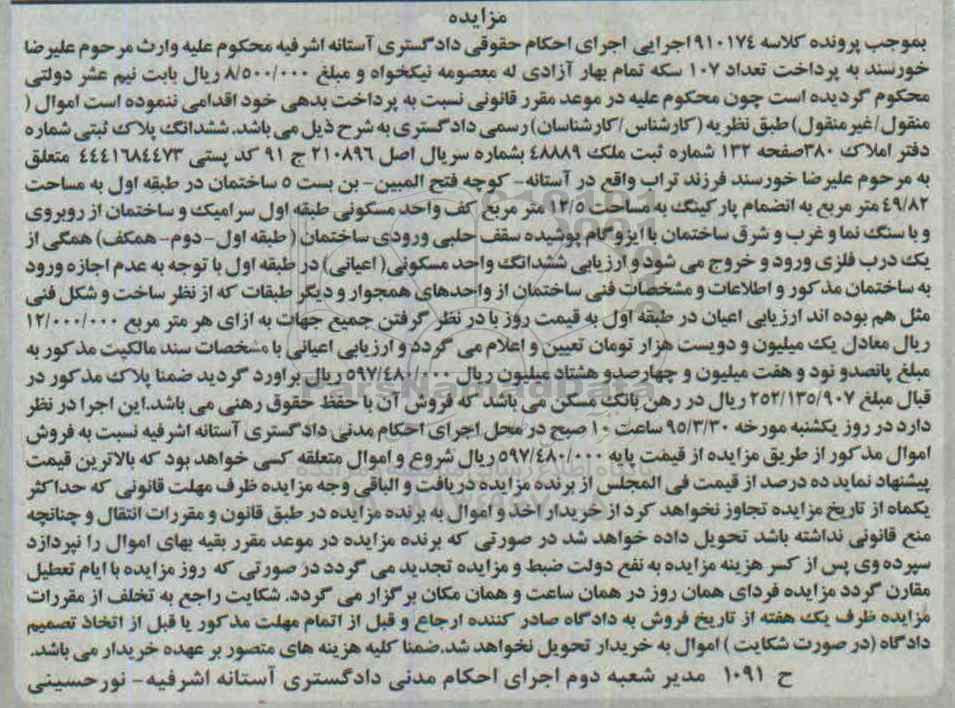 مزایده
بموجب پرونده کلاسه ۹۱۰۱۷٤ اجرایی اجرای احکام حقوقی دادگستری آستانه اشرفیه محکوم علیه وارث مرحوم علیرضا
خورسند به پرداخت تعداد ۱۰۷ سکه تمام بهار آزادی له معصومه نیکخواه و مبلغ ۸/۵۰۰/۰۰۰ ریال بابت نیم عشر دولتی
محکوم گردیده است چون محکوم علیه در موعد مقرر قانونی نسبت به پرداخت بدهی خود اقدامی ننموده است اموال (
منقول/غیر منقول) طبق نظریه (کارشناس/کارشناسان) رسمی دادگستری به شرح ذیل می باشد. ششدانگ پلاک ثبتی شماره
دفتر املاک ۳۸۰صفحه ۱۳۲ شماره ثبت ملک ٤۸۸۸۹ بشماره سریال اصل ۲۱۰۸۹٦ ج ۹۱ کد پستی ٤٤٤۱٦۸٤٤۷۳ متعلق
به مرحوم علیرضا خورسند فرزند تراب واقع در آستانه- کوچه فتح المبین- بن بست ۵ ساختمان در طبقه اول به مساحت
٤۹/۸۲ متر مربع به انضمام پارکینگ به مساحت ۱۲/۵ متر مربع کف واحد مسکونی طبقه اول سرامیک و ساختمان از روبروی
و با سنگ نما و غرب و شرق ساختمان با ایزوگام پوشیده سقف حلبی ورودی ساختمان ( طبقه اول- دوم- همکف) همگی از
یک درب فلزی ورود و خروج می شود و ارزیابی ششدانگ واحد مسکونی( اعیانی) در طبقه اول با توجه به عدم اجازه ورود
به ساختمان مذکور و اطلاعات و مشخصات فنی ساختمان از واحدهای همجوار و دیگر طبقات که از نظر ساخت و شکل فنی
مثل هم بوده اند ارزیابی اعیان در طبقه اول به قیمت روز با در نظر گرفتن جمیع جهات به ازای هر متر مربع ۱۲/۰۰۰/۰۰۰
ریال معادل یک میلیون و دویست هزار تومان تعیین و اعلام می گردد و ارزیابی اعیانی با مشخصات سند مالکیت مذکور به
مبلغ پانصدو نود و هفت میلیون و چهارصدو هشتاد میلیون ریال ۵۹۷/٤۸۰/۰۰۰ ریال براورد گردید ضمنا پلاک مذکور در
قبال مبلغ ۲۵۲/۱۳۵/۹۰۷ ریال در رهن بانک مسکن می باشد که فروش آن با حفظ حقوق رهنی می باشد.این اجرا در نظر
دارد در روز یکشنبه مورخه ۹۵/۳/۳۰ ساعت ۱۰ صبح در محل اجرای احکام مدنی دادگستری آستانه اشرفیه نسبت به فروش
اموال مذکور از طریق مزایده از قیمت پایه ۵۹۷/٤۸۰/۰۰۰ ریال شروع و اموال متعلقه کسی خواهد بود که بالاترین قیمت
پیشنهاد نماید ده درصد از قیمت فی المجلس از برنده مزایده دریافت و الباقی وجه مزایده ظرف مهلت قانونی که حداکثر
یکماه از تاریخ مزایده تجاوز نخواهد کرد از خریدار اخذ و اموال به برنده مزایده در طبق قانون و مقررات انتقال و چنانچه
منع قانونی نداشته باشد تحویل داده خواهد شد در صورتی که برنده مزایده در موعد مقرر بقیه بهای اموال را نپردازد
سپرده وی پس از کسر هزینه مزایده به نفع دولت ضبط و مزایده تجدید می گردد در صورتی که روز مزایده با ایام تعطیل
مقارن گردد مزایده فردای همان روز در همان ساعت و همان مکان برگزار می گردد. شکایت راجع به تخلف از مقررات
مزایده ظرف یک هفته از تاریخ فروش به دادگاه صادر کننده ارجاع و قبل از اتمام مهلت مذکور یا قبل از اتخاذ تصمیم
دادگاه (در صورت شکایت ) اموال به خریدار تحویل نخواهد شد.ضمنا کلیه هزینه های متصور بر عهده خریدار می باشد.
ح ۱۰۹۱ مدیر شعبه دوم اجرای احکام مدنی دادگستری آستانه اشرفیه- نورحسینی
ParsNamadData